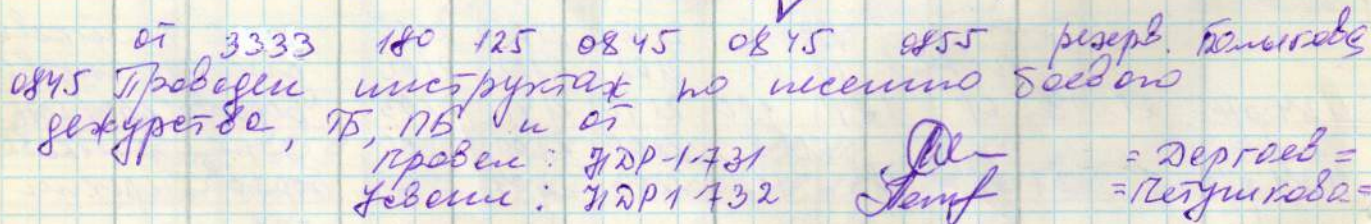 от 3333 180 125 0845 0845 0855 резерв. Болыкова
0845 Проведен инструктаж по несению боевого
дежурства, ТБ, ПБ и от
провел: НДР-1-731 =Дергоев=
усвоил: НДР1 732 =Петушкова=